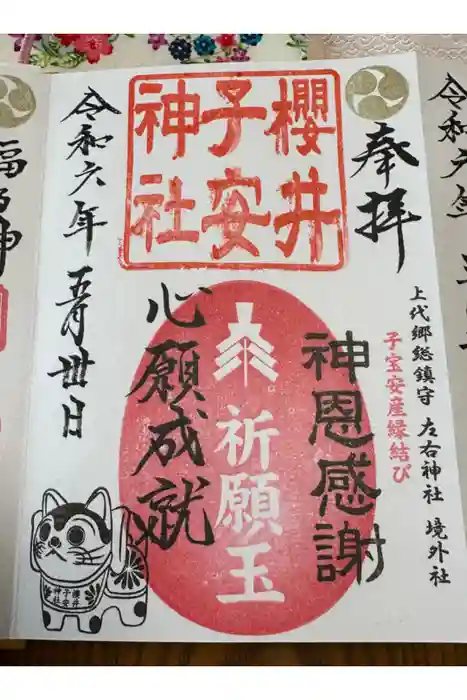 奉拝
上代郷総鎮守 左右神社 境外社
子宝安産縁結び
櫻井
子安
神社
神恩感謝
祈願玉
心願成就
令和六年 五月卅日
櫻井
子安
神社
令和六年
福
神